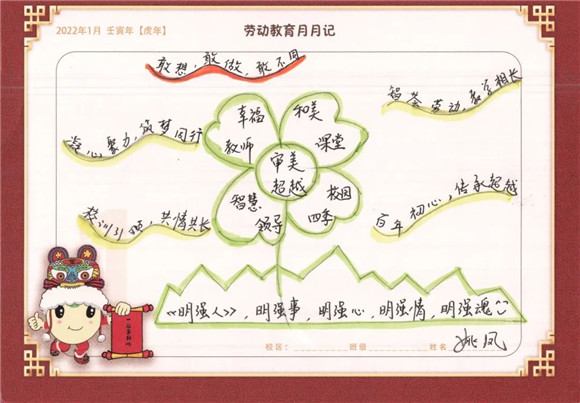 2022年1月 壬寅年【虎年】
劳动教育月月记
敢想,敢做,敢不同
智荟劳动,教学相长
凝心聚力,筑梦同行
幸福
教师
和美
课堂
审美
超越
智慧
领导
校园
四季
校训引领,共情共长
百年初心,传承超越
《明强人》,明强事,明强心,明强情,明强魂
校区:
班级
姓名